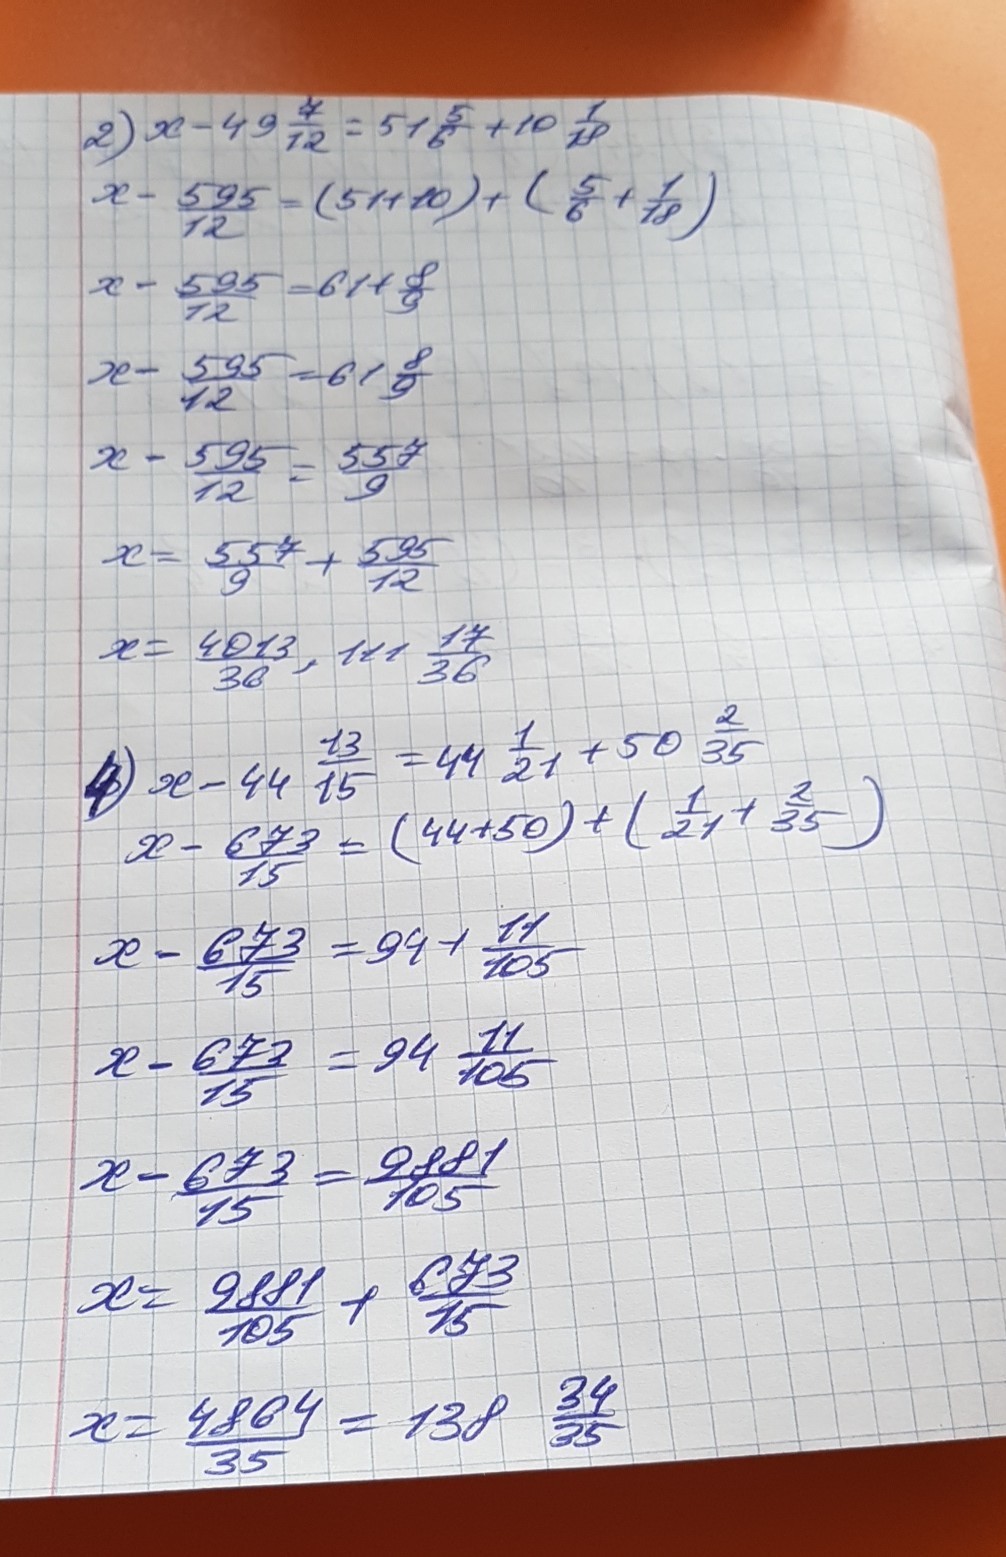 2) x - 49 7/12 = 51 5/6 + 10 1/18
x - 595/12 = (51+10) + (5/6 + 1/18)
x - 595/12 = 61 + 8/9
x - 595/12 = 61 8/9
x - 595/12 = 557/9
x = 557/9 + 595/12
x = 4013/36, 111 17/36
4) x - 44 13/15 = 44 1/21 + 50 2/35
x - 673/15 = (44+50) + (1/21 + 2/35)
x - 673/15 = 94 + 11/105
x - 673/15 = 94 11/105
x - 673/15 = 9881/105
x = 9881/105 + 673/15
x = 4864/35 = 138 34/35